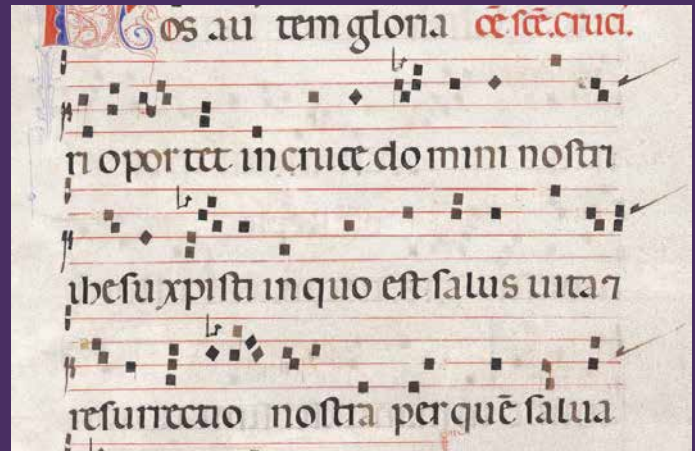 Nos au tem gloria œ̄ sc̄e. cruci.
ri oportet in cruce do mini nostri
ihesu xpisti in quo est salus uita ⁊
resurrectio nostra per quē salua